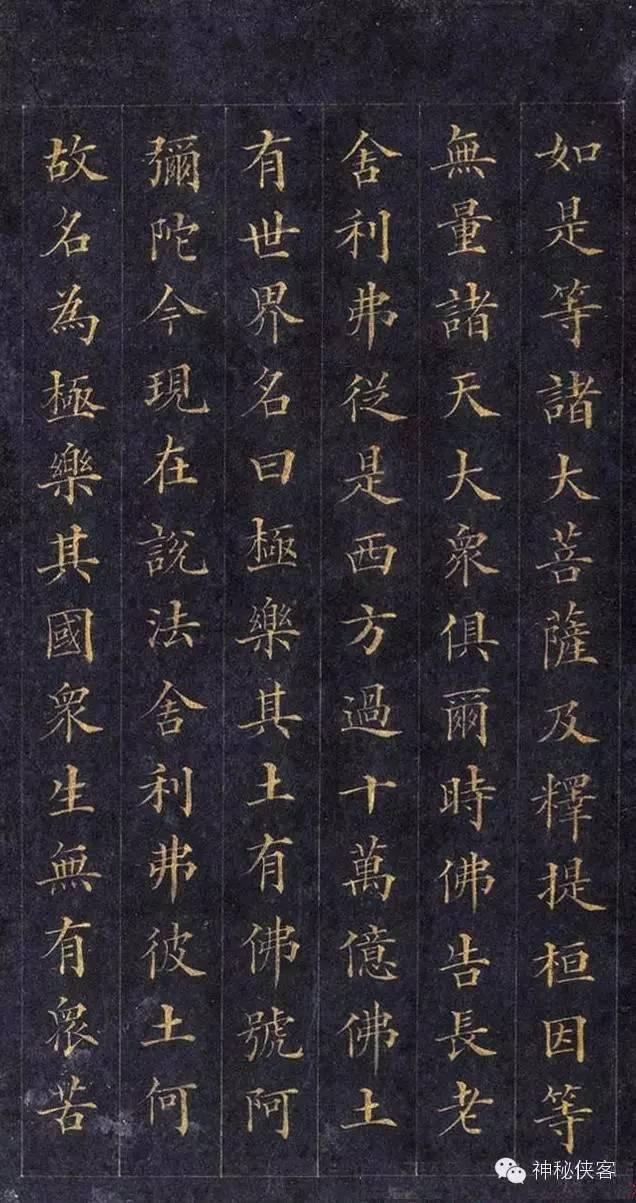 如是等諸大菩薩及釋提桓因等
無量諸天大衆俱爾時佛告長老
舍利弗從是西方過十萬億佛土
有世界名曰極樂其土有佛號阿
彌陀今現在說法舍利弗彼土何
故名為極樂其國衆生無有衆苦
神秘侠客